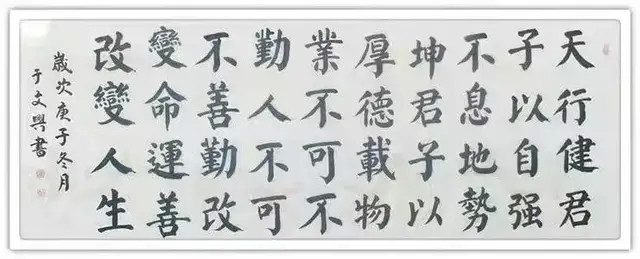 天行健君
子以自强
不息地勢
坤君子以
厚德載物
業不可不
勤人不可
不善勤改
變命運善
改變人生
歲次庚子冬月
于文興書